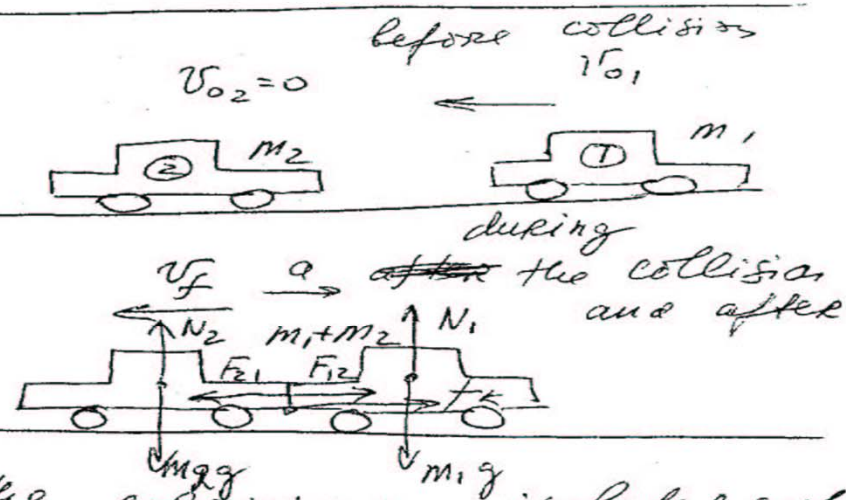 before collision
v₀₂=0
v₀₁
② m₂
① m₁
during
v_f a after the collision
and after
N₂ m₁+m₂ N₁
F₂₁ F₁₂ f_k
m₂g m₁g